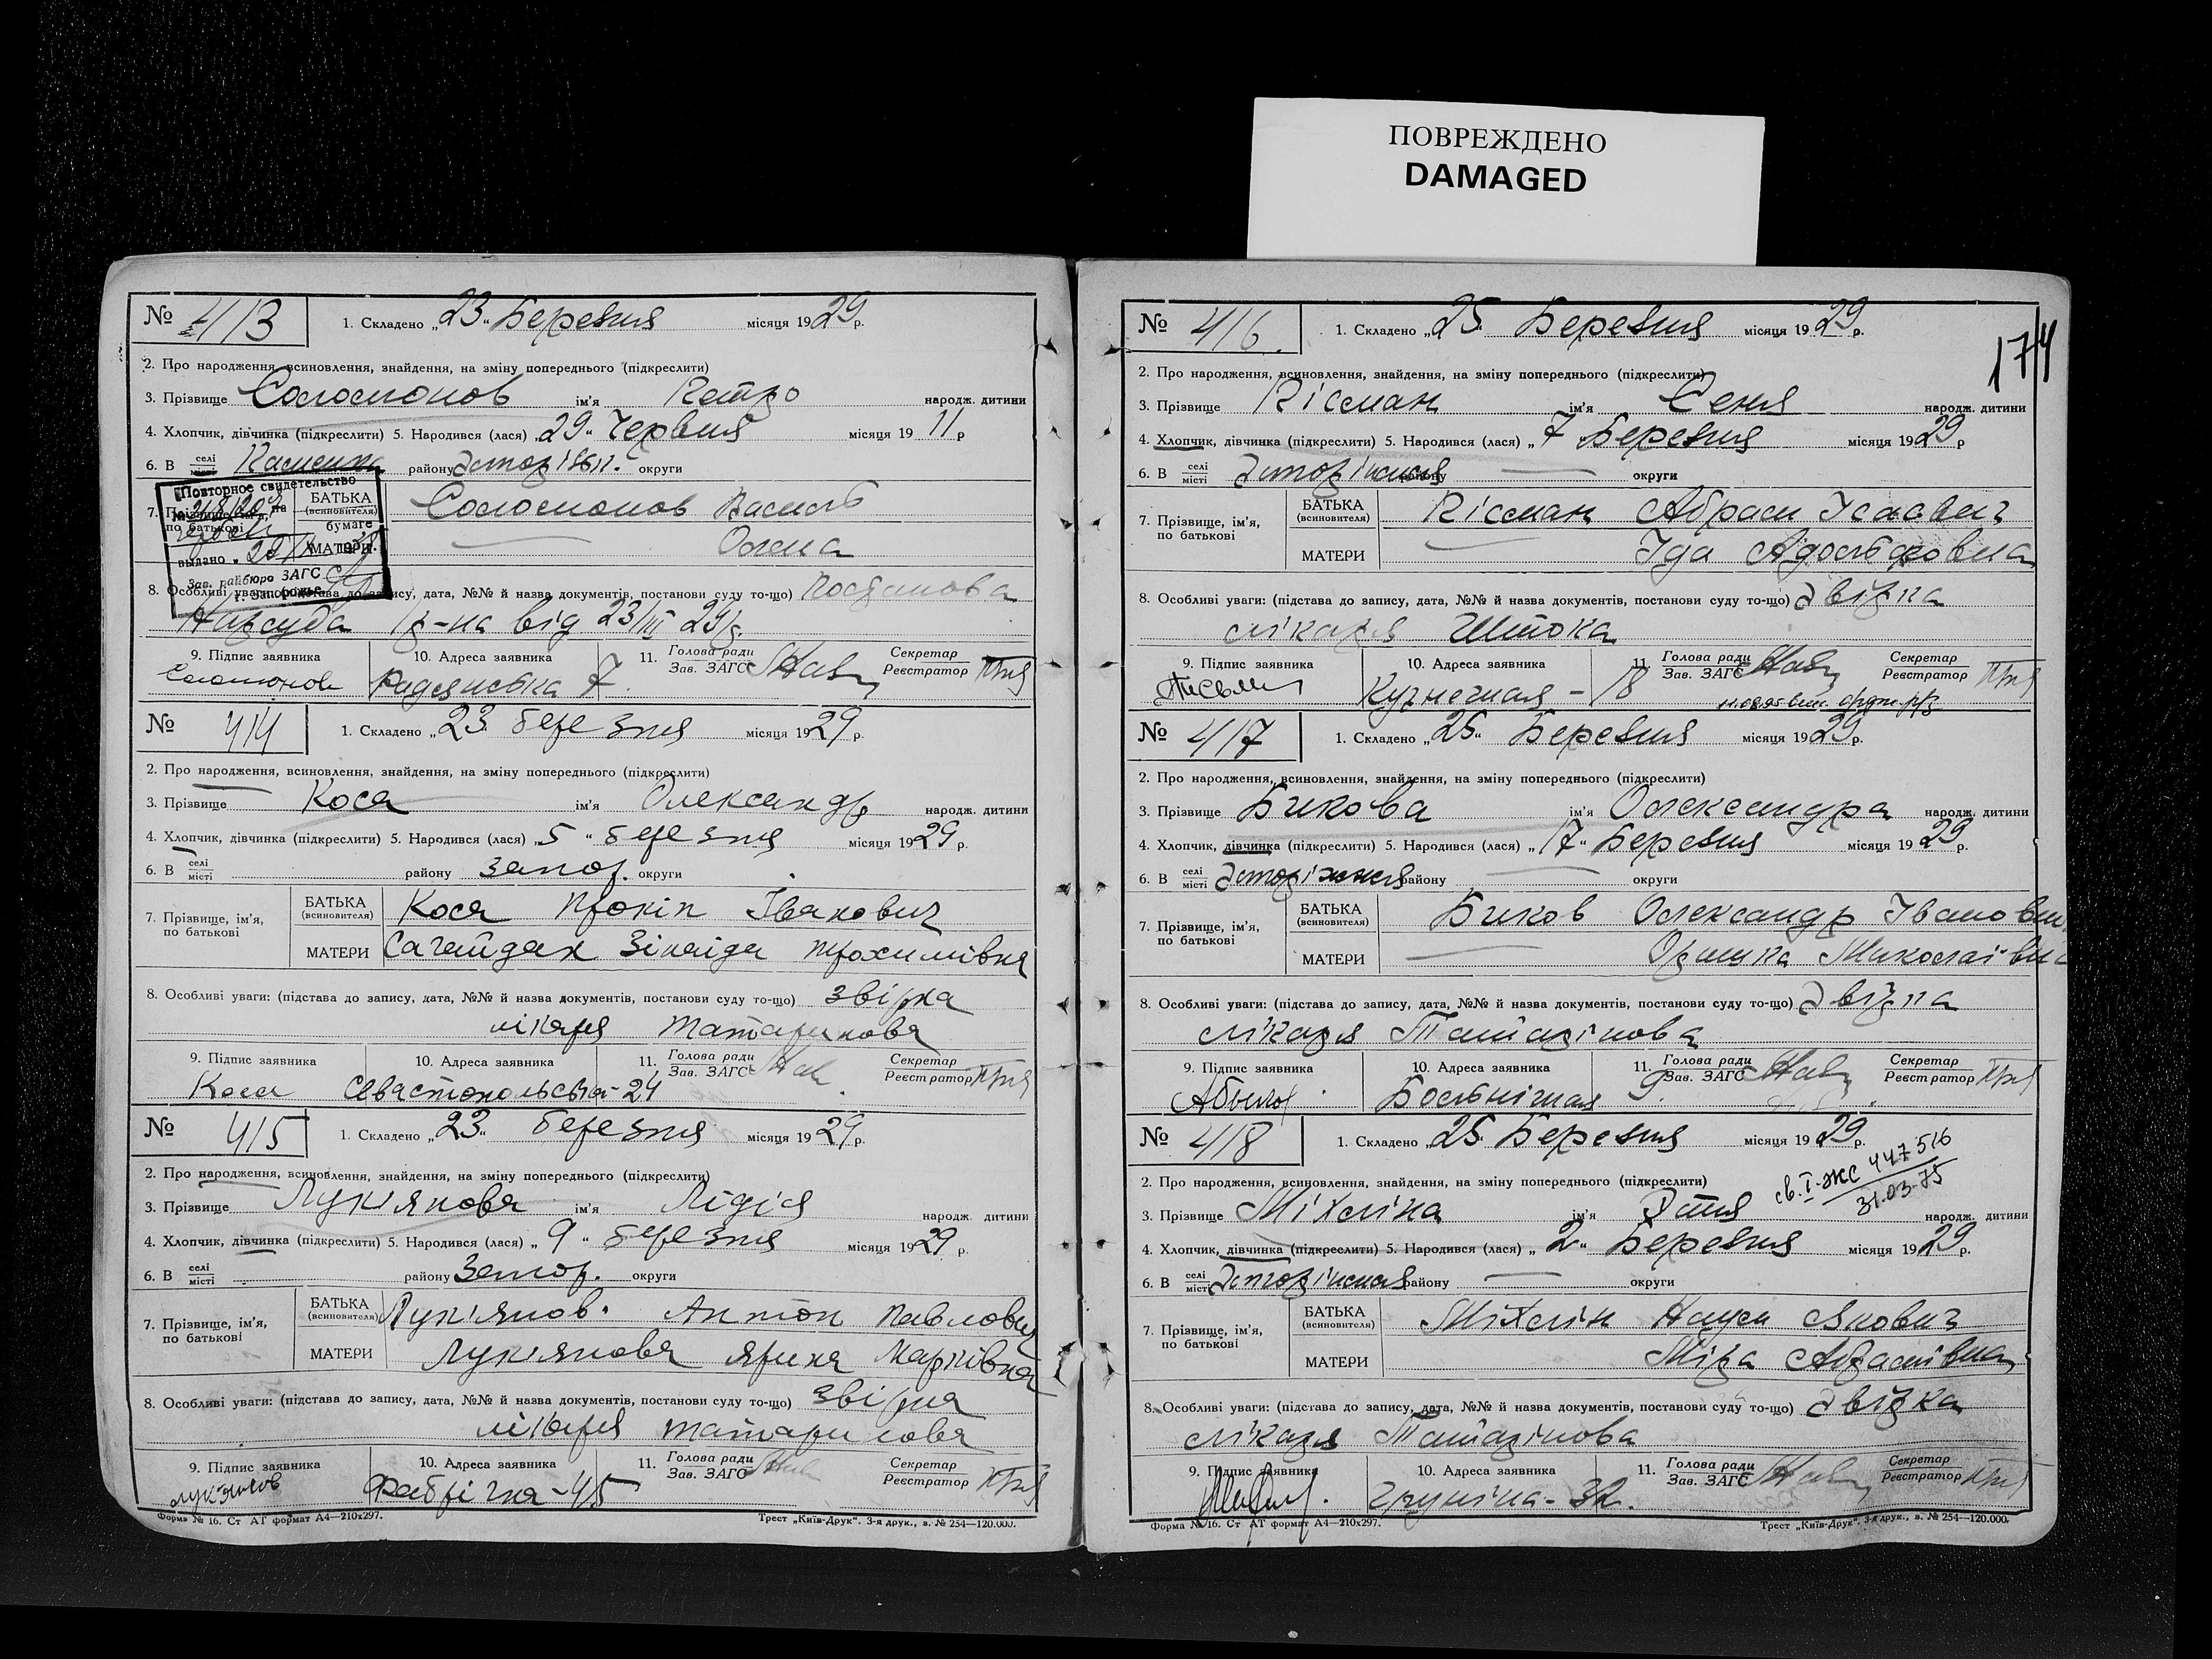 ПОВРЕЖДЕНО
DAMAGED
№ 413
1. Складено „23“ Березня місяця 1929 р.
2. Про народження, всиновлення, знайдення, на зміну попереднього (підкреслити)
3. Прізвище Соломонов ім'я Петро народж. дитини
4. Хлопчик, дівчинка (підкреслити) 5. Народився (лася) „29“ Червня місяця 1911 р
6. В селі місті Кам'янка району Запоріжж. округи
Повторное свидетельство
на бумаге
выдано
Зав. райбюро ЗАГС
г. Запорожье
7. Прізвище, ім'я, по батькові
БАТЬКА (всиновителя) Соломонов Василь
МАТЕРИ Олена
8. Особливі уваги: (підстава до запису, дата, №№ й назва документів, постанови суду то-що) Постанова
Нарсуда 1 р-на від 23/III 29 р.
9. Підпис заявника 10. Адреса заявника 11. Голова ради Зав. ЗАГС Секретар Реєстратор
Соломонов Радянська 7
№ 414
1. Складено „23“ березня місяця 1929 р.
2. Про народження, всиновлення, знайдення, на зміну попереднього (підкреслити)
3. Прізвище Коса ім'я Олександр народж. дитини
4. Хлопчик, дівчинка (підкреслити) 5. Народився (лася) „5“ березня місяця 1929 р.
6. В селі місті району Запор. округи
7. Прізвище, ім'я, по батькові
БАТЬКА (всиновителя) Коса Прокіп Іванович
МАТЕРИ Сагайдак Зінаїда Трохимівна
8. Особливі уваги: (підстава до запису, дата, №№ й назва документів, постанови суду то-що) звірка
лікаря Татаринова
9. Підпис заявника 10. Адреса заявника 11. Голова ради Зав. ЗАГС Секретар Реєстратор
Коса Севастопольська-24
№ 415
1. Складено „23“ березня місяця 1929 р.
2. Про народження, всиновлення, знайдення, на зміну попереднього (підкреслити)
3. Прізвище Лук'янова ім'я Лідія народж. дитини
4. Хлопчик, дівчинка (підкреслити) 5. Народився (лася) „9“ березня місяця 1929 р.
6. В селі місті району Запор. округи
7. Прізвище, ім'я, по батькові
БАТЬКА (всиновителя) Лук'янов. Антон Павлович
МАТЕРИ Лук'янова Ярина Марківна
8. Особливі уваги: (підстава до запису, дата, №№ й назва документів, постанови суду то-що) звірка
лікаря Татаринова
9. Підпис заявника 10. Адреса заявника 11. Голова ради Зав. ЗАГС Секретар Реєстратор
Лук'янов Фабрічна-45
Форма № 16. Ст АТ формат А4—210х297. Трест „Київ-Друк“. 3-я друк., в. № 254—120.000.
174
№ 416.
1. Складено „25“ Березня місяця 1929 р.
2. Про народження, всиновлення, знайдення, на зміну попереднього (підкреслити)
3. Прізвище Кісман ім'я Сеня народж. дитини
4. Хлопчик, дівчинка (підкреслити) 5. Народився (лася) „7 Березня місяця 1929 р
6. В селі місті Запоріжжя району — округи
7. Прізвище, ім'я, по батькові
БАТЬКА (всиновителя) Кісман Абрам Ісаович
МАТЕРИ Іда Адольфовна
8. Особливі уваги: (підстава до запису, дата, №№ й назва документів, постанови суду то-що) Звірка
лікаря Штока
9. Підпис заявника 10. Адреса заявника 11. Голова ради Зав. ЗАГС Секретар Реєстратор
Кузнечная - 18
№ 417
1. Складено „25“ Березня місяця 1929 р.
2. Про народження, всиновлення, знайдення, на зміну попереднього (підкреслити)
3. Прізвище Бикова ім'я Олександра народж. дитини
4. Хлопчик, дівчинка (підкреслити) 5. Народився (лася) „17“ Березня місяця 1929 р.
6. В селі місті Запоріжжя району — округи
7. Прізвище, ім'я, по батькові
БАТЬКА (всиновителя) Биков Олександр Іванович
МАТЕРИ Оришка Миколаївна
8. Особливі уваги: (підстава до запису, дата, №№ й назва документів, постанови суду то-що) Звірка
лікаря Татарінова
9. Підпис заявника 10. Адреса заявника 11. Голова ради Зав. ЗАГС Секретар Реєстратор
Больнічная 9.
№ 418
1. Складено „25“ Березня місяця 1929 р.
св. I-ЖС 447516
31.03.75
2. Про народження, всиновлення, знайдення, на зміну попереднього (підкреслити)
3. Прізвище Міхліна ім'я народж. дитини
4. Хлопчик, дівчинка (підкреслити) 5. Народився (лася) „2“ Березня місяця 1929 р.
6. В селі місті Запоріжжя району — округи
7. Прізвище, ім'я, по батькові
БАТЬКА (всиновителя) Міхлін Наум Якович
МАТЕРИ Міра Абрамівна
8. Особливі уваги: (підстава до запису, дата, №№ й назва документів, постанови суду то-що) Звірка
лікаря Татарінова
9. Підпис заявника 10. Адреса заявника 11. Голова ради Зав. ЗАГС Секретар Реєстратор
32.
Форма № 16. Ст АТ формат А4—210х297. Трест „Київ-Друк“. 3-я друк., в. № 254—120.000.